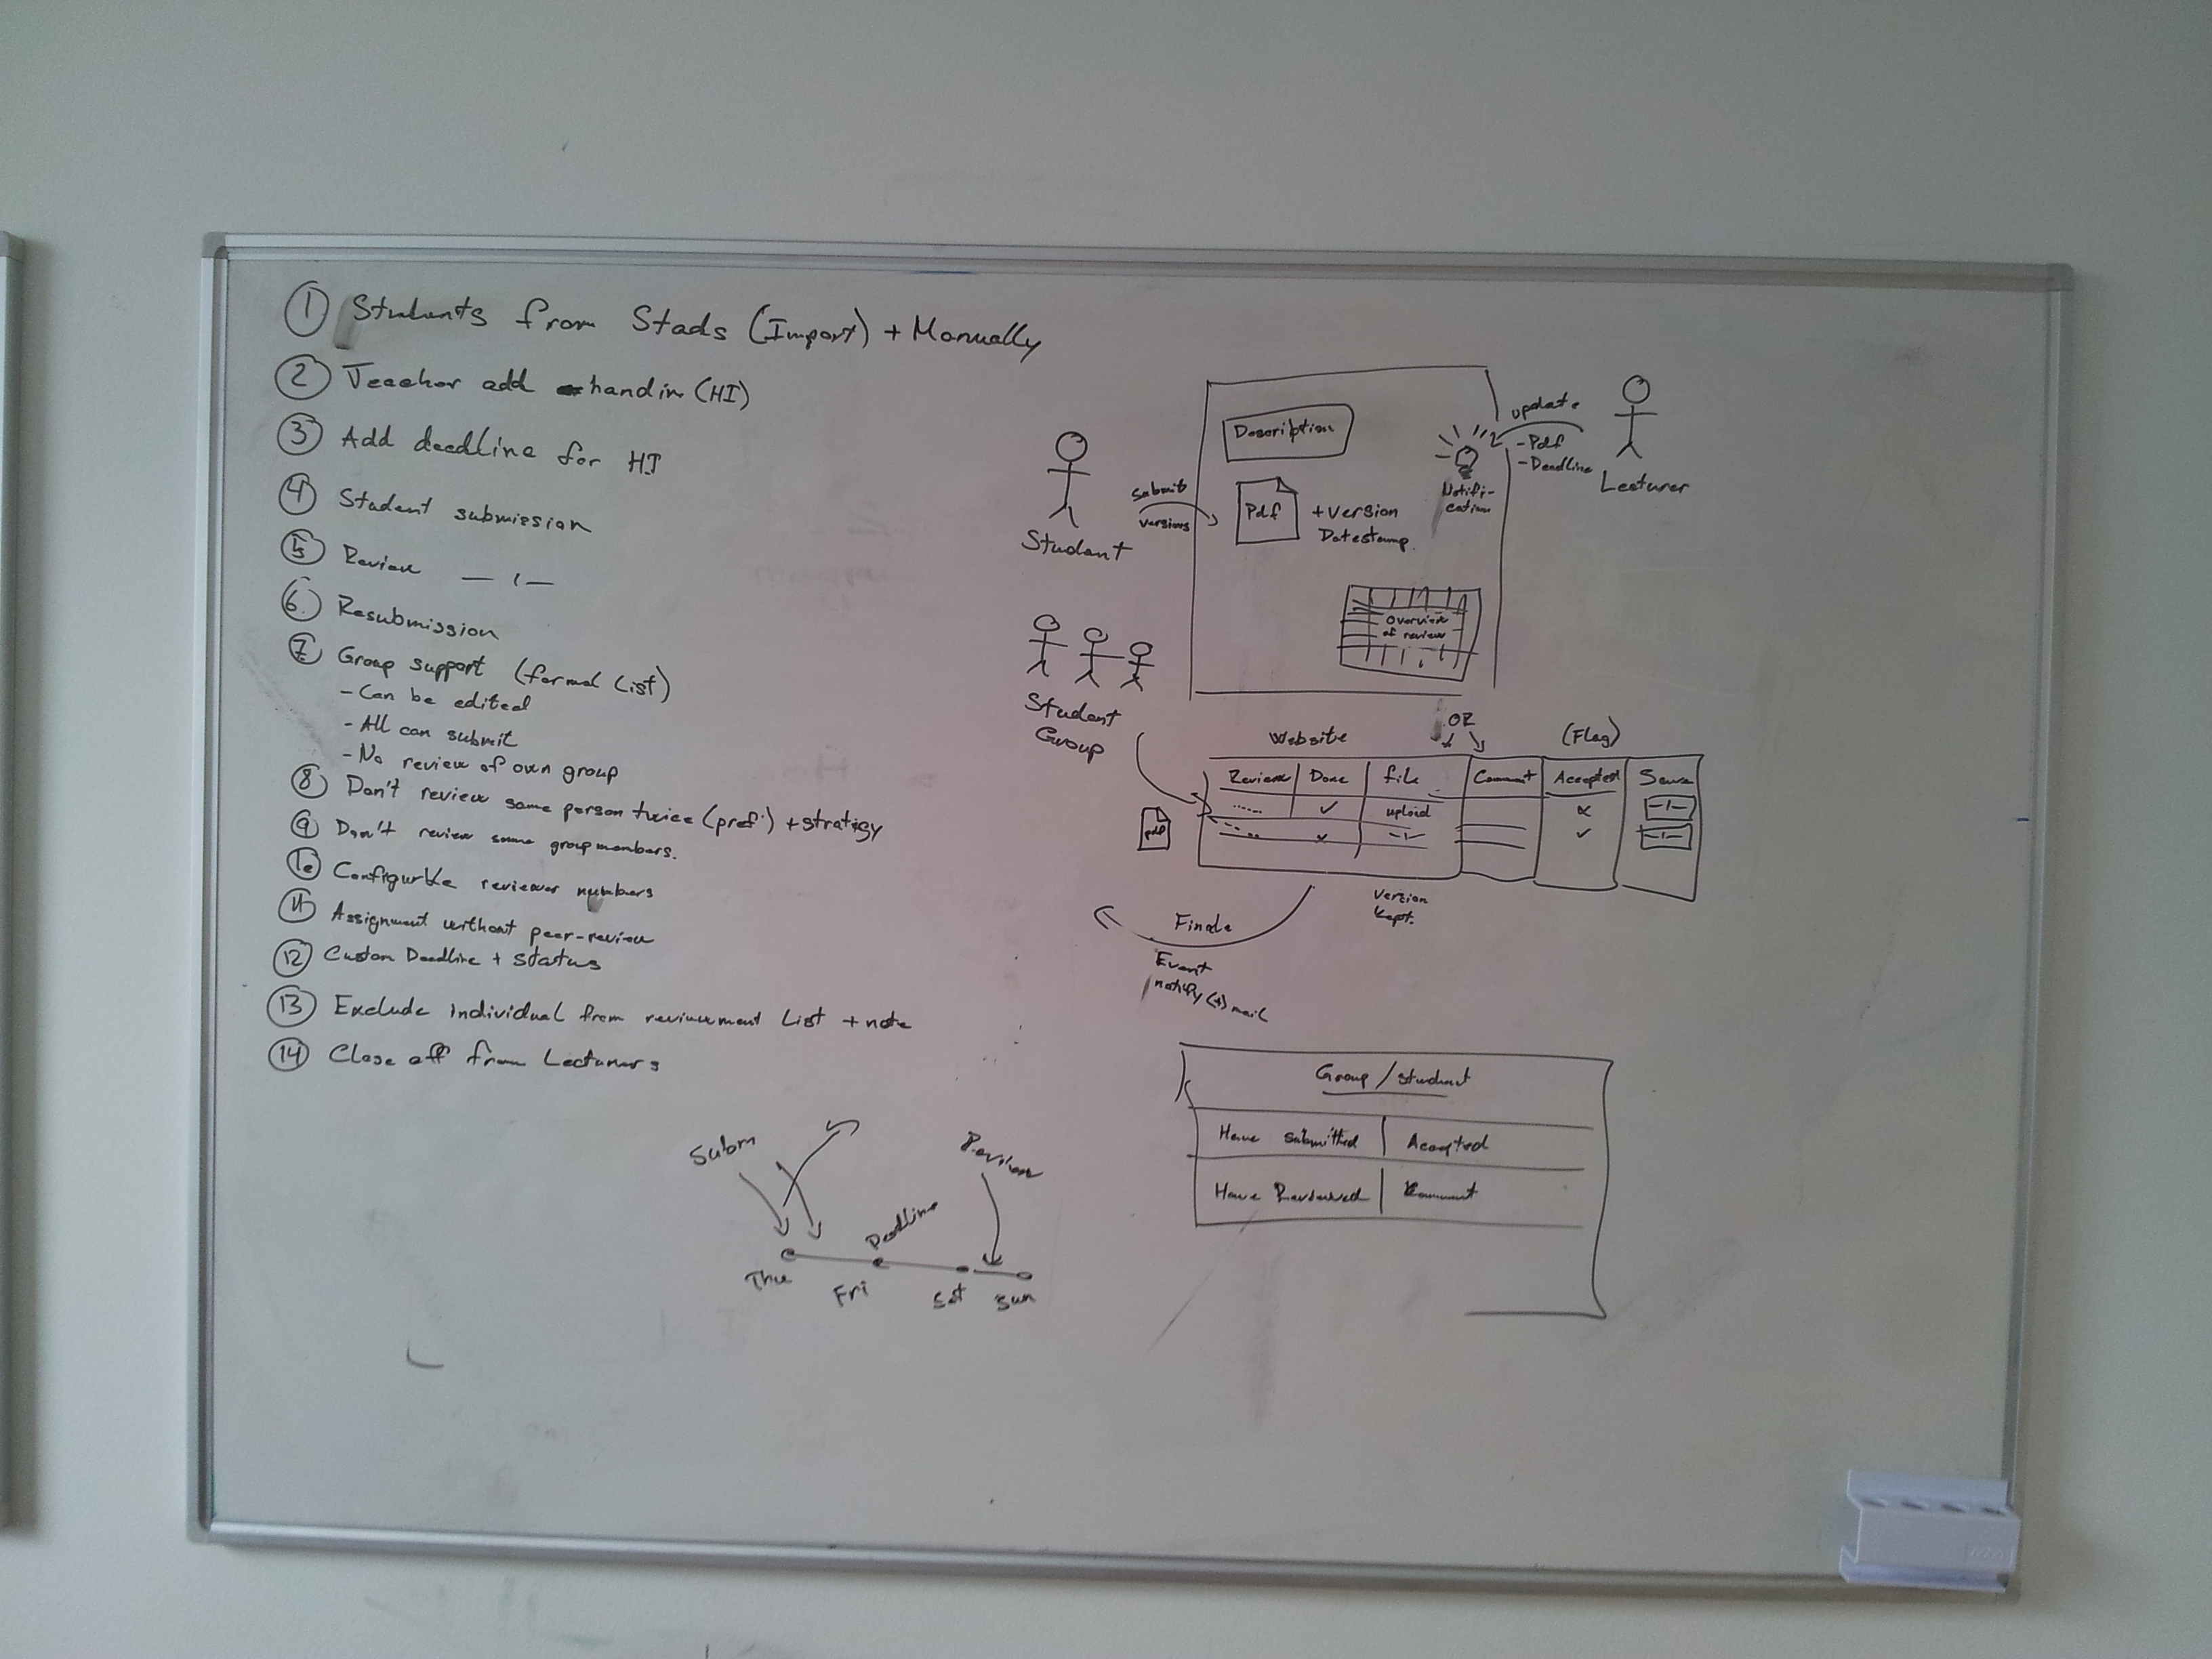 1 Students from Stads (Import) + Manually
2 Teacher add handin (HI)
3 Add deadline for HI
4 Student submission
5 Review — ı —
6. Resubmission
7. Group support (formal List)
- Can be edited
- All can submit
- No review of own group
8 Don't review same person twice (pref.) + strategy
9 Don't review same groupmembers.
10 Configurble reviewer numbers
11 Assignment without peer-review
12 Custom Deadline + status
13 Exclude individual from reviewment List + note
14 Close off from Lecturers
Subm
Review
Deadline
Thu
Fri
Sat
Sun
Description
update
- Pdf
- Deadline
Lecturer
Notifi-
cation
submit
versions
Pdf
+ version
Datestamp.
Student
Overview
of review
Student
Group
Website
OR
(Flag)
Review Done file Comment Accepted
upload
pdf
version
kept.
Event
notify (+) mail
Group / student
Have submitted Accepted
Have Reviewed Comment